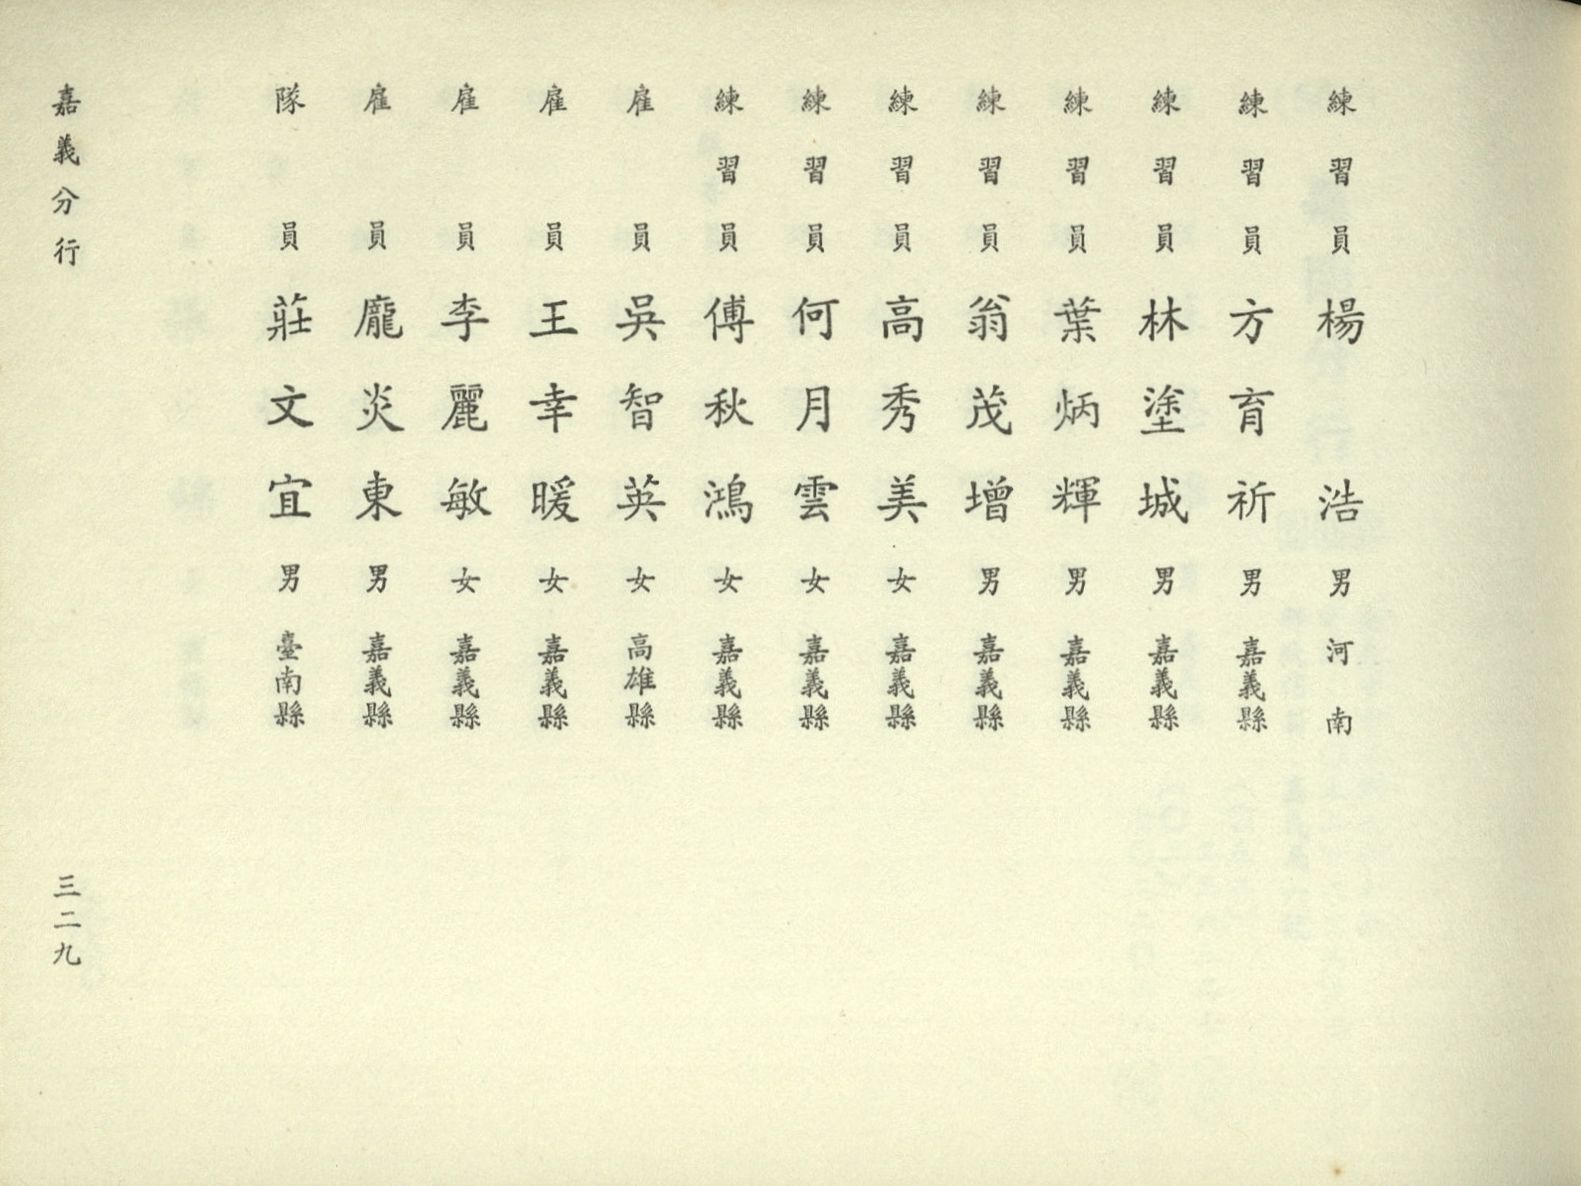 練習員楊浩男河南
練習員方育祈男嘉義縣
練習員林塗城男嘉義縣
練習員葉炳輝男嘉義縣
練習員翁茂增男嘉義縣
練習員高秀美女嘉義縣
練習員何月雲女嘉義縣
練習員傅秋鴻女嘉義縣
雇員吳智英女高雄縣
雇員王幸暖女嘉義縣
雇員李麗敏女嘉義縣
雇員龐炎東男嘉義縣
隊員莊文宜男臺南縣
嘉義分行
三二九